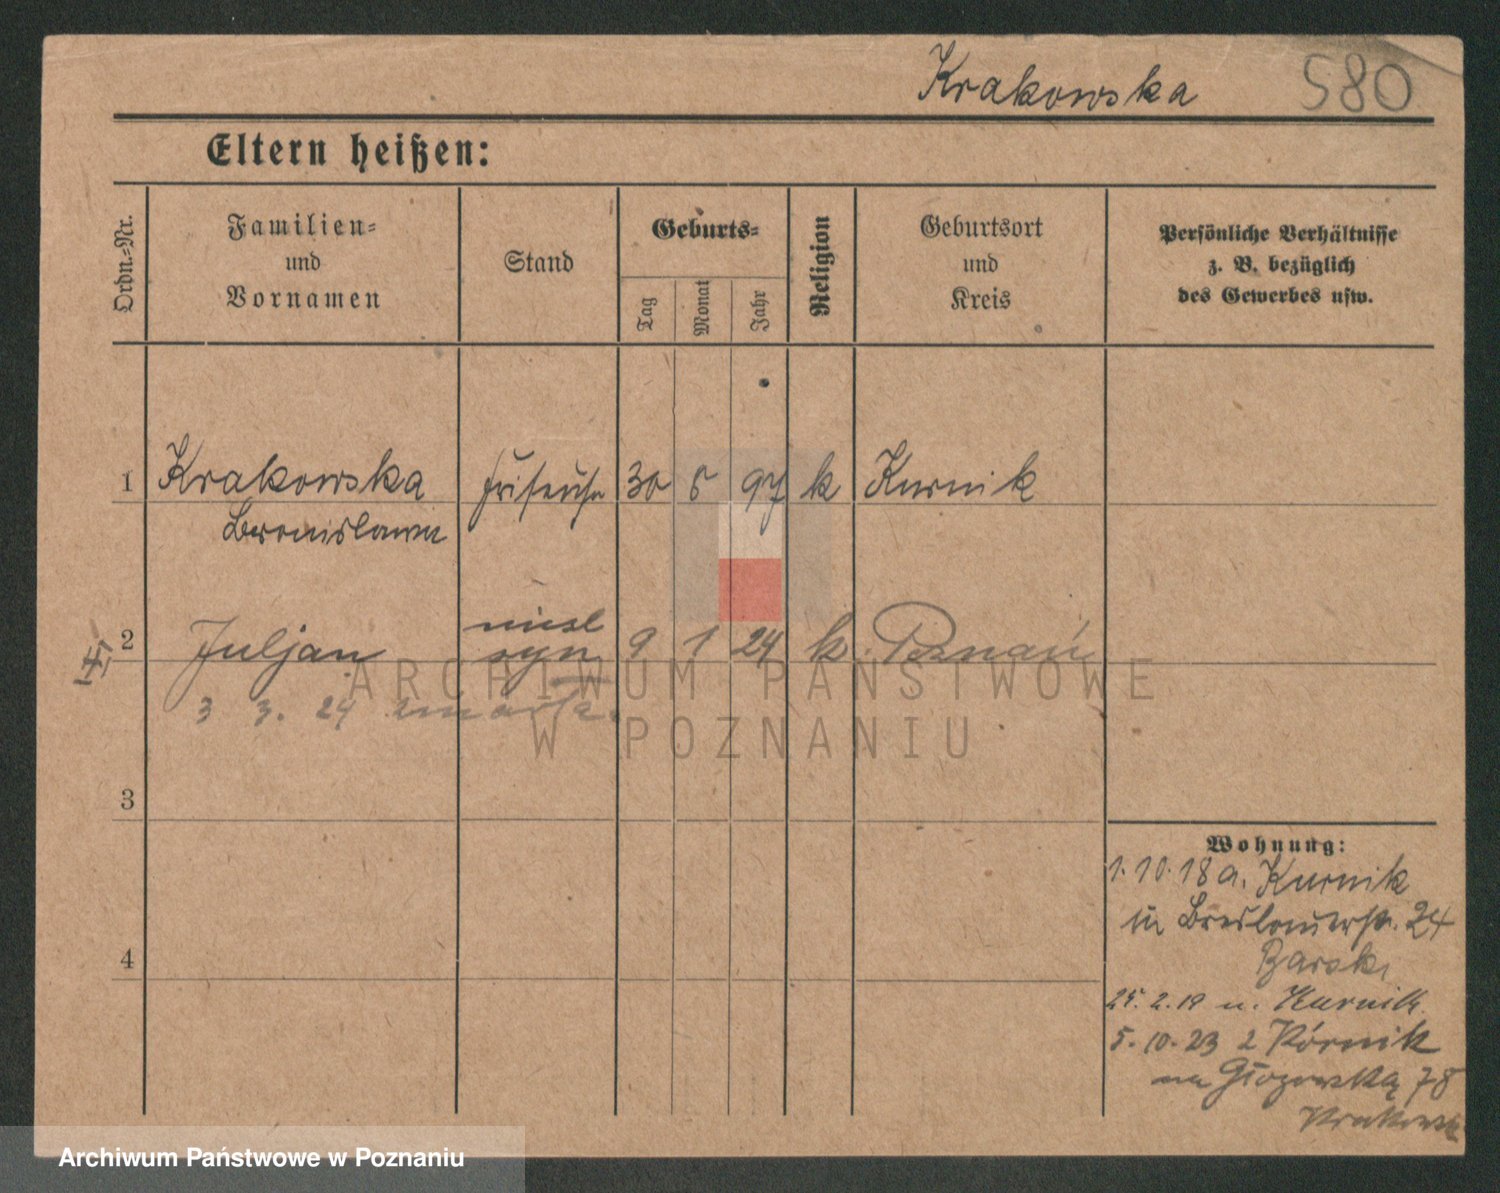 Krakowska 580
Eltern heißen:
Ordn.-Nr.
Familien-
und
Vornamen
Stand
Geburts-
Tag
Monat
Jahr
Religion
Geburtsort
und
Kreis
Persönliche Verhältnisse
z. B. bezüglich
des Gewerbes usw.
1 Krakowska Friseuse 30 5 97 k Kurnik
Bronislawa
2 Juljan niesl 9 1 24 k. Poznań
syn
3 3. 24 zmarł
3
4
Wohnung:
1.10.18 a. Kurnik
in Breslauerstr. 24
Barski
25.2.19 n. Kurnik
5.10.23 z Kórnik
na Głogowską 78
Krakowsk
ARCHIWUM PAŃSTWOWE
W POZNANIU
Archiwum Państwowe w Poznaniu